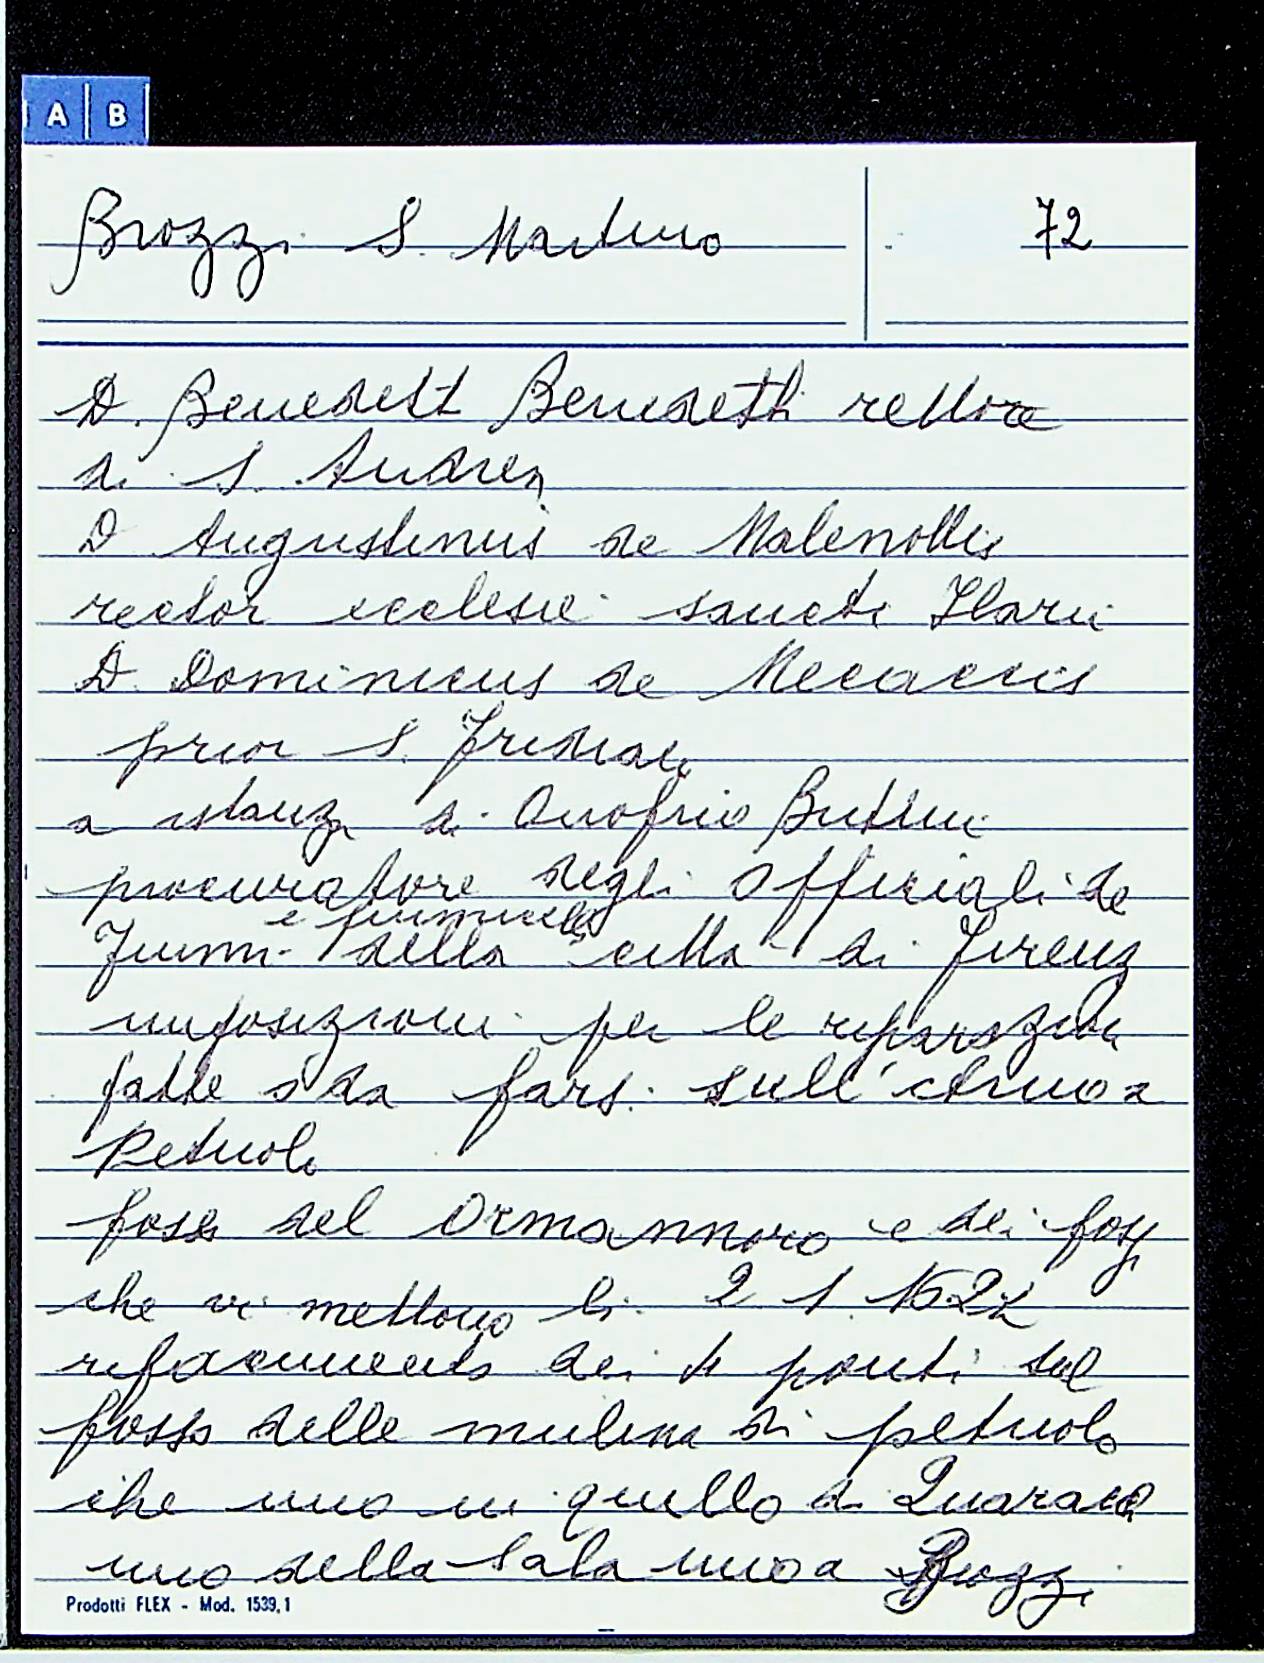 A B
Brozzi S. Martino 72
D. Benedett Benedetti rettore
di S. Andrea
D Augustinus de Malenottis
rector ecclesie sancti Ilarii
D. Dominicus de Mecaccis
prior S. Frediani
a istanza di Onofrio Buttini
procuratore degli Offiziali de
e fiumicelli
Fiumi della città di Firenz
imposizioni per le riparazioni
fatte o da farsi sull'
Petriolo
fosso del Ormannoro e dei fossi
che vi mettono li 2 1
rifacimento dei ponti sul
fosso delle mulina di petriolo
che uno in quello di Quaracchi
uno della Sala uno a Brozzi
Prodotti FLEX - Mod. 1539,1